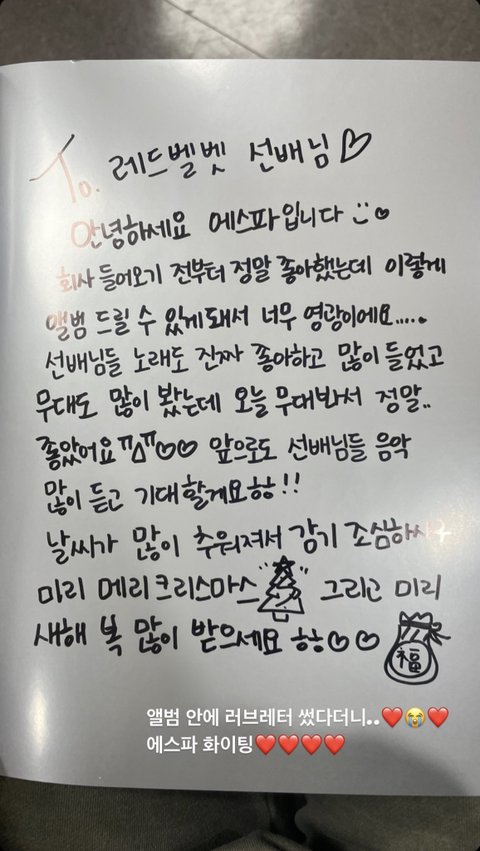 To. 레드벨벳 선배님♡
안녕하세요 에스파입니다 :)♡
회사 들어오기 전부터 정말 좋아했는데 이렇게
앨범 드릴 수 있게돼서 너무 영광이에요.....
선배님들 노래도 진짜 좋아하고 많이 들었고
무대도 많이 봤는데 오늘 무대봐서 정말..
좋았어요ㅠ△ㅠ♡♡ 앞으로도 선배님들 음악
많이 듣고 기대할게요ㅎㅎ!!
날씨가 많이 추워져서 감기 조심하시구
미리 메리크리스마스 그리고 미리
새해 복 많이 받으세요 ㅎㅎ♡♡
福
앨범 안에 러브레터 썼다더니..❤️😭❤️
에스파 화이팅❤️❤️❤️❤️